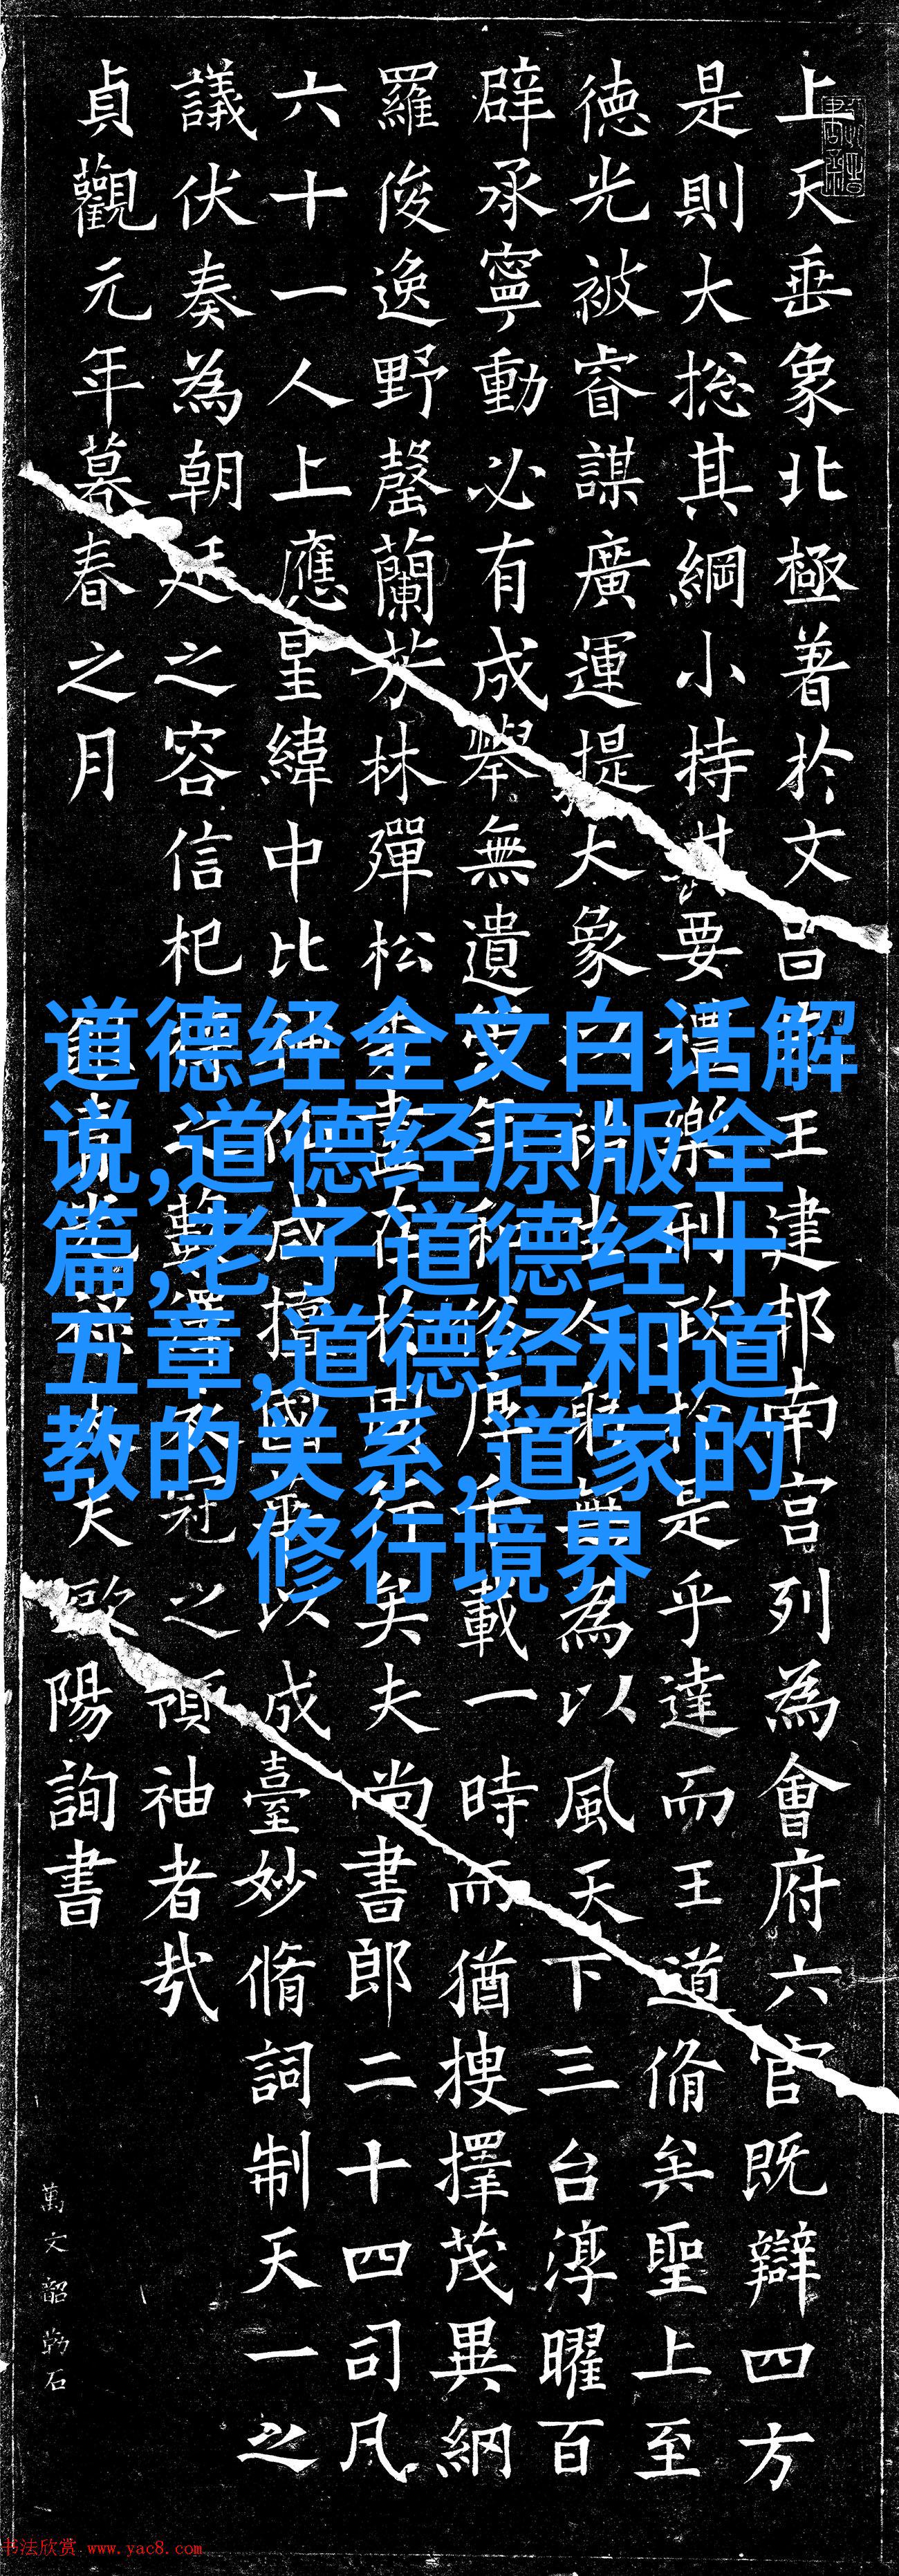 上天垂象北極著於文昌王建邦南宮列為會府六官既辯四方
是則大捴其綱小持其要禮樂刑政於是乎達而王道脩矣聖上至
德光被睿謀廣運提大象躬無為以風天下三台淳曜百
辟承寧動必有成舉無遺策年和俗厚千載一時而猶搜擇茂異網
羅俊逸野罄蘭芳林殫松秀盡在於周行矣夫尚書郎二十四司凡
六十一人上應星緯中比神仙咸擅國華以成臺妙脩詞制天一之
議伏奏為朝廷之容信杞梓之藪澤衣冠之領袖者哉
貞觀元年暮春之月銀青光祿大夫歐陽詢書
萬文韶勒石
道德经全文白话解
说,道德经原版全
篇,老子道德经十
五章,道德经和道
教的关系,道家的
修行境界
书法欣赏 www.yac8.com